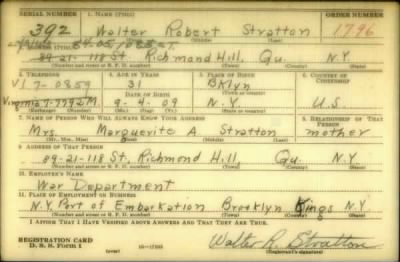 SERIAL NUMBER 1. NAME (PRINT) ORDER NUMBER
392 Walter Robert Stratton 1796
(First) (Middle) (Last)
89-21-118 St. Richmond Hill. Qu. N.Y.
(Number and street or R. F. D. number) (Town) (County) (State)
3. TELEPHONE 4. AGE IN YEARS 5. PLACE OF BIRTH 6. COUNTRY OF CITIZENSHIP
VI 7-0859 31 Bklyn
DATE OF BIRTH (Town or county)
Virginia 7-7792M 9-4-09 N.Y. U.S.
(Exchange) (Number) (Mo.) (Day) (Yr.) (State or country)
7. NAME OF PERSON WHO WILL ALWAYS KNOW YOUR ADDRESS 8. RELATIONSHIP OF THAT PERSON
Mrs. Marguerite A. Stratton mother
(Mr., Mrs., Miss) (First) (Middle) (Last)
9. ADDRESS OF THAT PERSON
89-21-118 St. Richmond Hill Qu. N.Y.
(Number and street or R. F. D. number) (Town) (County) (State)
10. EMPLOYER'S NAME
War Department
11. PLACE OF EMPLOYMENT OR BUSINESS
N.Y. Port of Embarkation Brooklyn Kings N.Y.
(Number and street or R. F. D. number) (Town) (County) (State)
I AFFIRM THAT I HAVE VERIFIED ABOVE ANSWERS AND THAT THEY ARE TRUE.
REGISTRATION CARD
D. S. S. FORM 1 (over) 16-17105 Walter R. Stratton
(Registrant's signature)